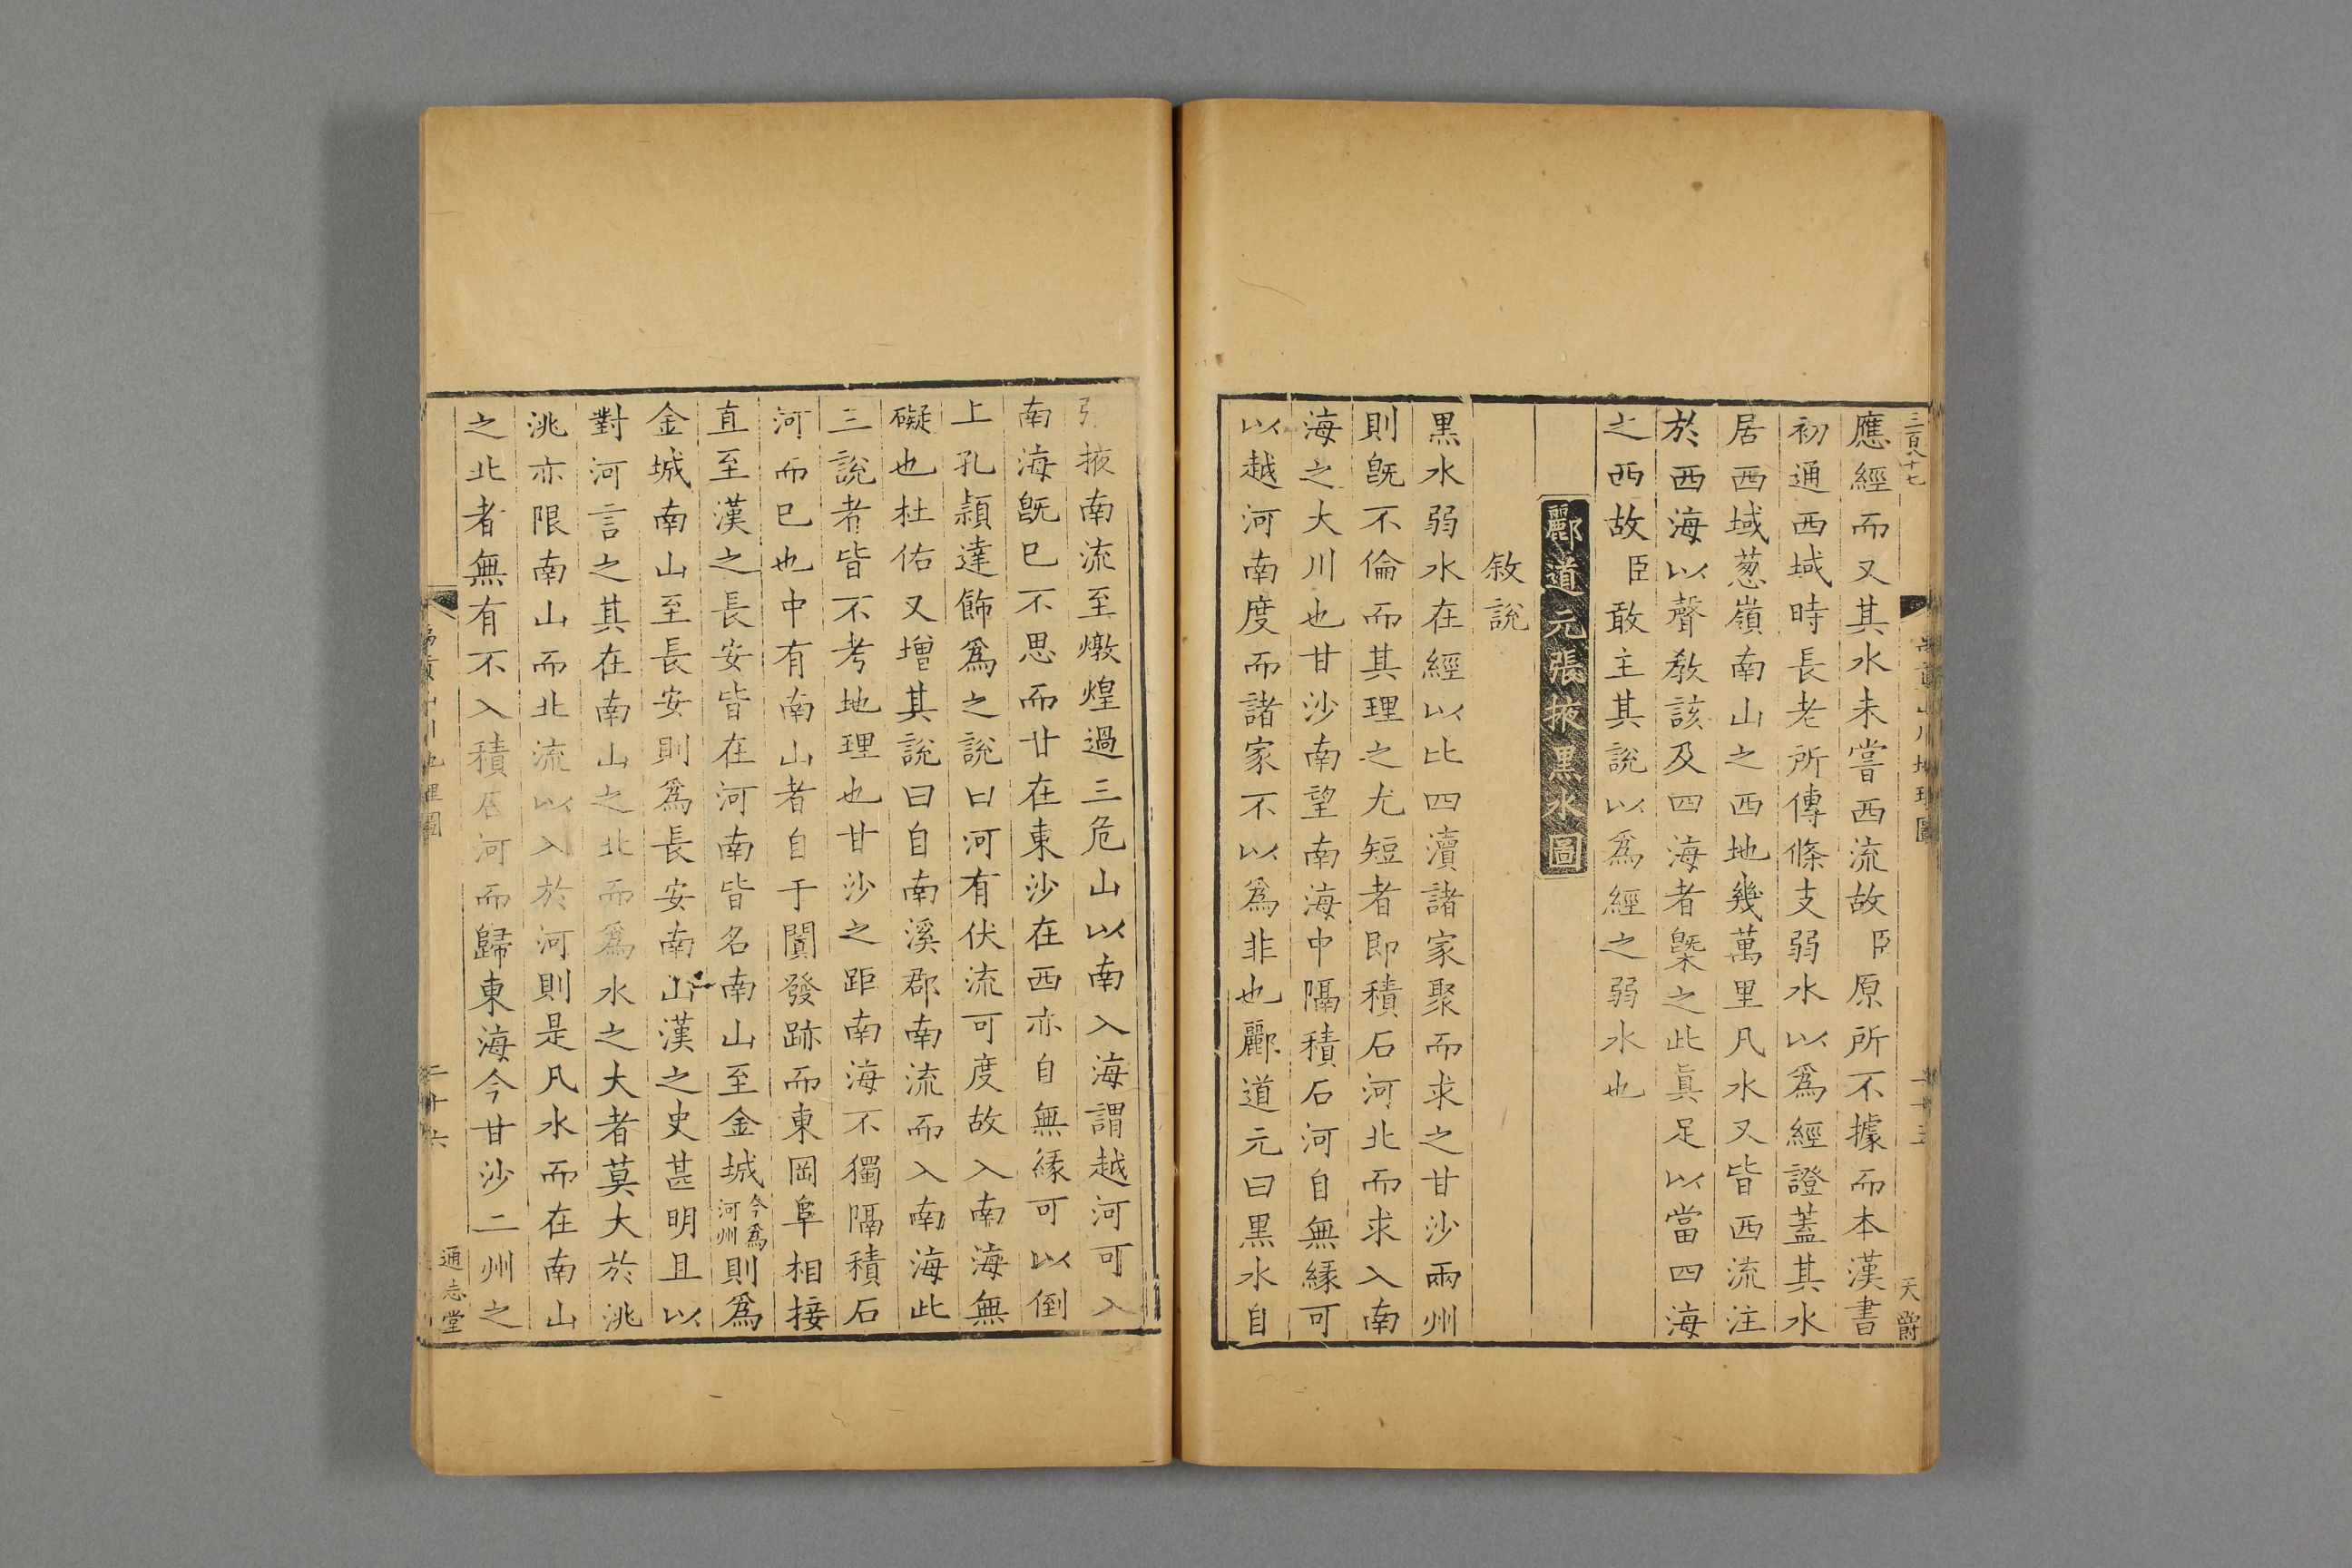 三百八十七
天爵
應經而又其水未嘗西流故臣原所不據而本漢書
初通西域時長老所傳條支弱水以爲經證蓋其水
居西域葱嶺南山之西地幾萬里凡水又皆西流注
於西海以聲教該及四海者槩之此眞足以當四海
之西故臣敢主其說以爲經之弱水也
酈道元張掖黑水圖
敘說
黑水弱水在經以比四瀆諸家聚而求之甘沙兩州
則旣不倫而其理之尤短者即積石河北而求入南
海之大川也甘沙南望南海中隔積石河自無緣可
以越河南度而諸家不以爲非也酈道元曰黑水自
張掖南流至燉煌過三危山以南入海謂越河可入
南海旣已不思而甘在東沙在西亦自無緣可以倒
上孔頴達飾爲之說曰河有伏流可度故入南海無
礙也杜佑又增其說曰自南溪郡南流而入南海此
三說者皆不考地理也甘沙之距南海不獨隔積石
河而已也中有南山者自于闐發跡而東岡阜相接
直至漢之長安皆在河南皆名南山至金城今爲河州則爲
金城南山至長安則爲長安南山漢之史甚明且以
對河言之其在南山之北而爲水之大者莫大於洮
洮亦限南山而北流以入於河則是凡水而在南山
之北者無有不入積石河而歸東海今甘沙二州之
禹貢山川地理圖
二十六
通志堂